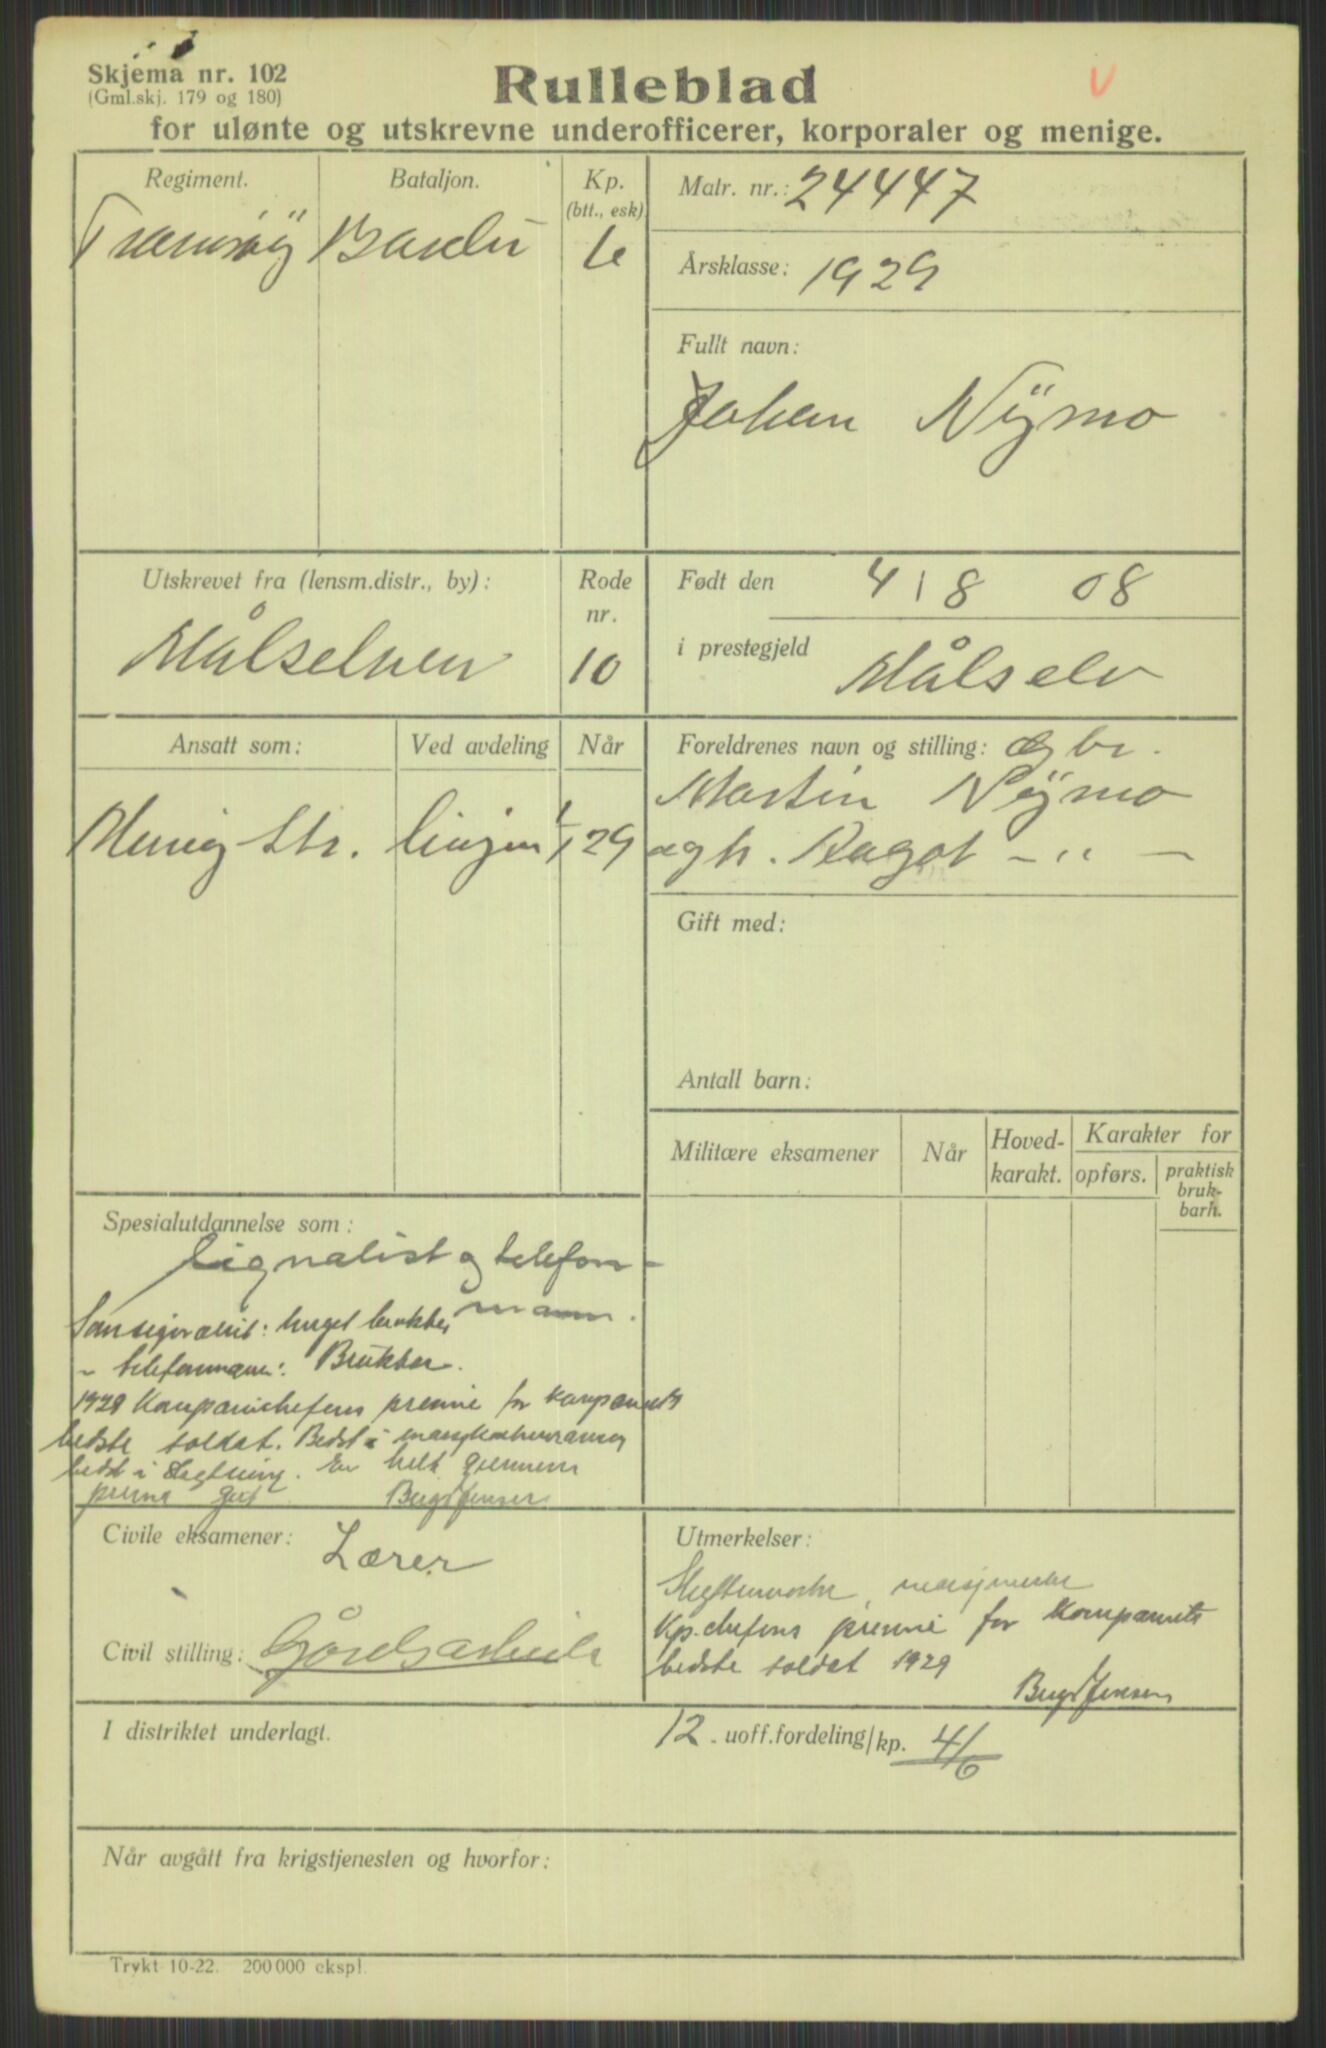 Skjema nr. 102
(Gml.skj. 179 og 180)
Rulleblad
for ulønte og utskrevne underofficerer, korporaler og menige.
Regiment.
Bataljon.
Kp.
(btt., esk)
Matr. nr.: 24447
Bardu
Årsklasse: 1929
Fullt navn:
Johan Nÿmo
Utskrevet fra (lensm.distr., by):
Rode
nr.
Målselven
10
Født den 4/8 08
i prestegjeld Målselv
Ansatt som:
Ved avdeling
Når
Menig str. linjen 1/1 29
Foreldrenes navn og stilling: Gbr.
Martin Nÿmo
og h. Ragot - " -
Gift med:
Antall barn:
Militære eksamener
Når
Hoved-
karakt.
Karakter for
opførs.
praktisk
bruk-
barh.
Spesialutdannelse som:
Signalist og telefon-
mann.
Som signalist: meget brukbar
- telefonmann: Brukbar.
1929 Kompanichefens premie for kompaniets
bedste soldat. Bedst i
bedst i skytning. En helt gjennem
prima gut BergsJensen
Civile eksamener: Lærer
Civil stilling: Gårdsarbeide
Utmerkelser:
Skyttermerke, marsjmerke
Kp.chefens premie for kompaniets
bedste soldat 1929
BergsJensen
I distriktet underlagt.
12. uoff.fordeling/kp. 4/6
Når avgått fra krigstjenesten og hvorfor:
Trykt 10-22. 200 000 ekspl.